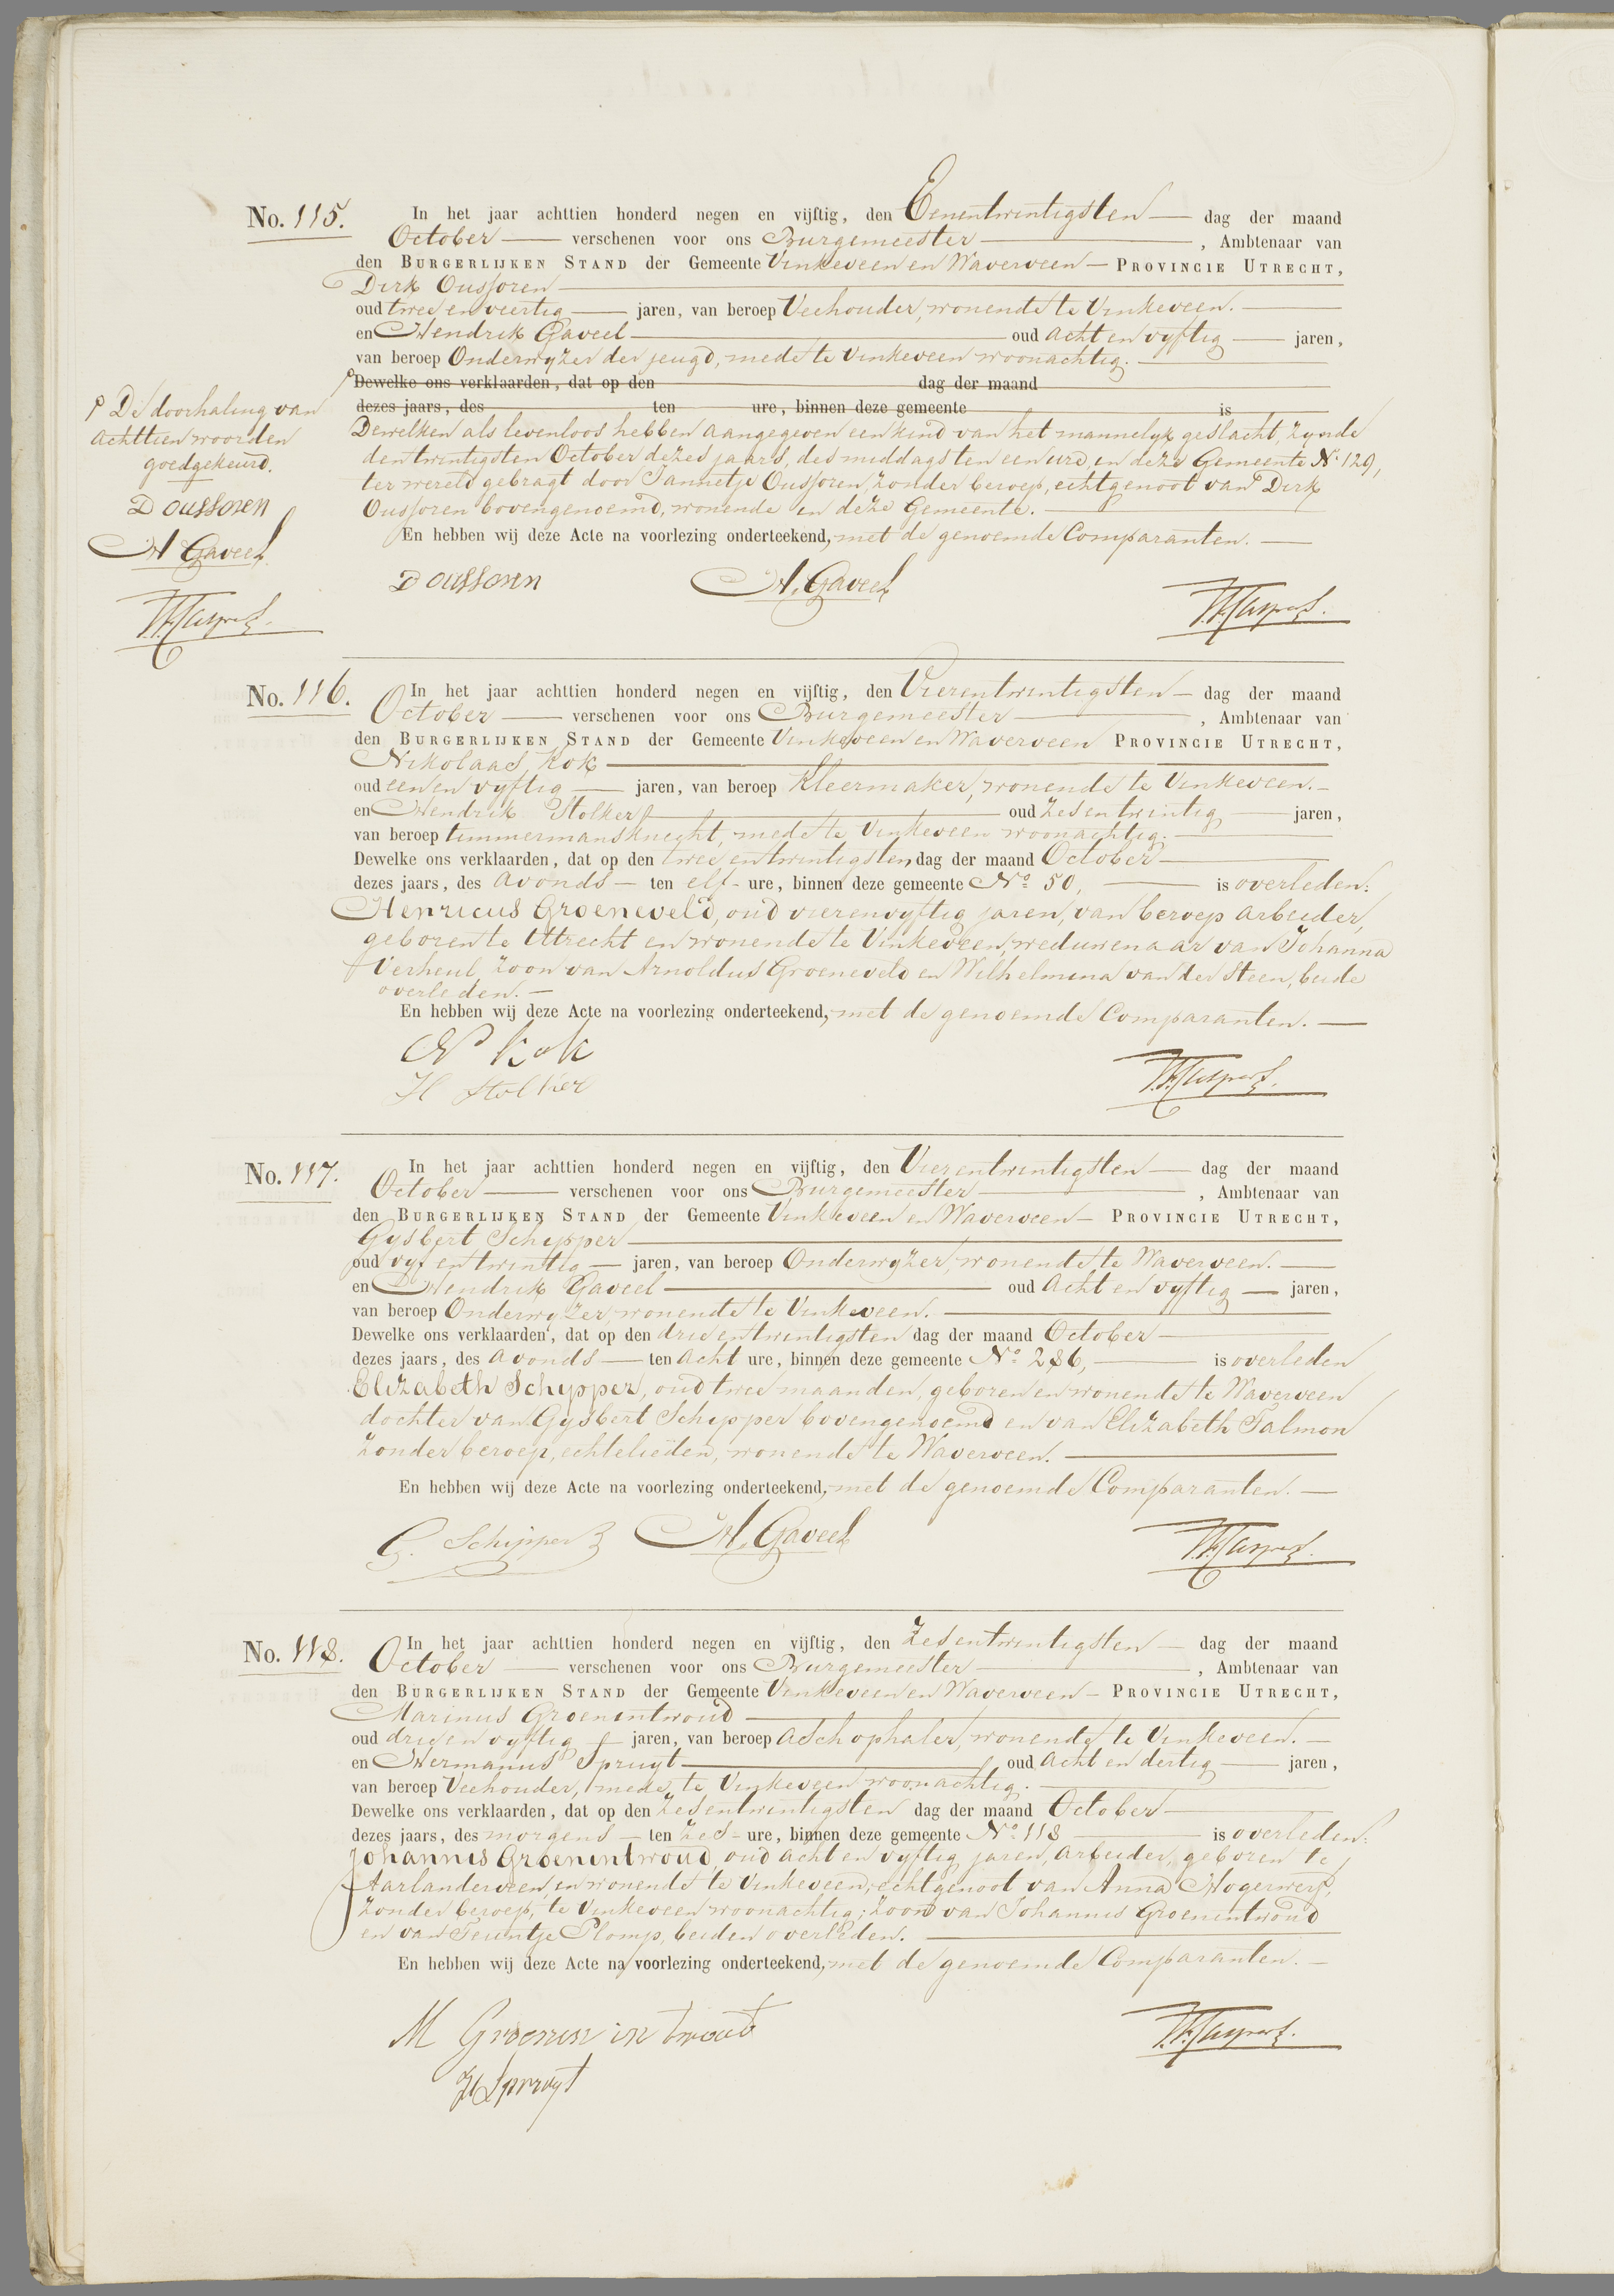 No. 115. In het jaar achttien honderd negen en vijftig, den Eenentwintigsten — dag der maand
October — verschenen voor ons Burgemeester —, Ambtenaar van
den Burgerlijken Stand der Gemeente Vinkeveen en Waverveen — Provincie Utrecht,
Dirk Oussoren —
oud twee en veertig — jaren, van beroep Veehouder, wonende te Vinkeveen. —
en Hendrik Gaveel — oud acht en vyftig — jaren,
van beroep Onderwyzer der jeugd, mede te Vinkeveen woonachtig. —
Dewelke ons verklaarden, dat op den dag der maand
dezes jaars, des ten ure, binnen deze gemeente is
Dewelken als levenloos hebben aangegeven een kind van het mannelyk geslacht, zynde
den twintigsten October dezes jaars, des middags ten een ure, in deze Gemeente No. 129,
ter wereld gebragt door Jannetje Oussoren, zonder beroep, echtgenoot van Dirk
Oussoren bovengenoemd, wonende in deze Gemeente. —
En hebben wij deze Acte na voorlezing onderteekend, met de genoemde Comparanten. —
D Oussoren H. Gaveel
De doorhaling van
achttien woorden
goedgekeurd.
D Oussoren
H Gaveel
No. 116. In het jaar achttien honderd negen en vijftig, den Vierentwintigsten — dag der maand
October — verschenen voor ons Burgemeester —, Ambtenaar van
den Burgerlijken Stand der Gemeente Vinkeveen en Waverveen Provincie Utrecht,
Nikolaas Kok —
oud een en vyftig — jaren, van beroep Kleermaker, wonende te Vinkeveen. —
en Hendrik Stolker — oud zesentwintig — jaren,
van beroep timmermansknecht, mede te Vinkeveen woonachtig. —
Dewelke ons verklaarden, dat op den twee entwintigsten dag der maand October —
dezes jaars, des avonds — ten elf - ure, binnen deze gemeente No. 50, — is overleden:
Henricus Groeneveld, oud vierenvyftig jaren, van beroep arbeider,
geboren te Uttrecht en wonende te Vinkeveen, weduwenaar van Johanna
Verheul, zoon van Arnoldus Groeneveld en Wilhelmina van der Steen, beide
overleden. —
En hebben wij deze Acte na voorlezing onderteekend, met de genoemde Comparanten. —
N Kok
H Stolker
No. 117. In het jaar achttien honderd negen en vijftig, den Vierentwintigsten — dag der maand
October — verschenen voor ons Burgemeester —, Ambtenaar van
den Burgerlijken Stand der Gemeente Vinkeveen en Waverveen — Provincie Utrecht,
Gysbert Schypper —
oud vyf entwintig — jaren, van beroep Onderwyzer, wonende te Waverveen. —
en Hendrik Gaveel — oud acht en vyftig — jaren,
van beroep Onderwyzer, wonende te Vinkeveen. —
Dewelke ons verklaarden, dat op den drie entwintigsten dag der maand October —
dezes jaars, des avonds — ten acht ure, binnen deze gemeente No. 286, — is overleden
Elizabeth Schypper, oud twee maanden, geboren en wonende te Waverveen
dochter van Gysbert Schypper bovengenoemd en van Elizabeth Talmon
zonder beroep, echtelieden, wonende te Waverveen. —
En hebben wij deze Acte na voorlezing onderteekend, met de genoemde Comparanten. —
G. Schipper H. Gaveel
No. 118. In het jaar achttien honderd negen en vijftig, den Zesentwintigsten — dag der maand
October — verschenen voor ons Burgemeester —, Ambtenaar van
den Burgerlijken Stand der Gemeente Vinkeveen en Waverveen — Provincie Utrecht,
Marinus Groenintwoud —
oud drie en vyftig — jaren, van beroep aschophaler, wonende te Vinkeveen. —
en Hermanus Spruyt — oud acht en dertig — jaren,
van beroep Veehouder, mede te Vinkeveen woonachtig. —
Dewelke ons verklaarden, dat op den Zesentwintigsten dag der maand October —
dezes jaars, des morgens — ten zes - ure, binnen deze gemeente No. 118 — is overleden:
Johannis Groenintwoud, oud acht en vyftig jaren, arbeider, geboren te
Aarlanderveen, en wonende te Vinkeveen, echtgenoot van Anna Hogerwerf,
zonder beroep, te Vinkeveen woonachtig; zoon van Johannis Groenintwoud
en van Teuntje Plomp, beiden overleden. —
En hebben wij deze Acte na voorlezing onderteekend, met de genoemde Comparanten. —
M Groenen in twoud
H Spruyt